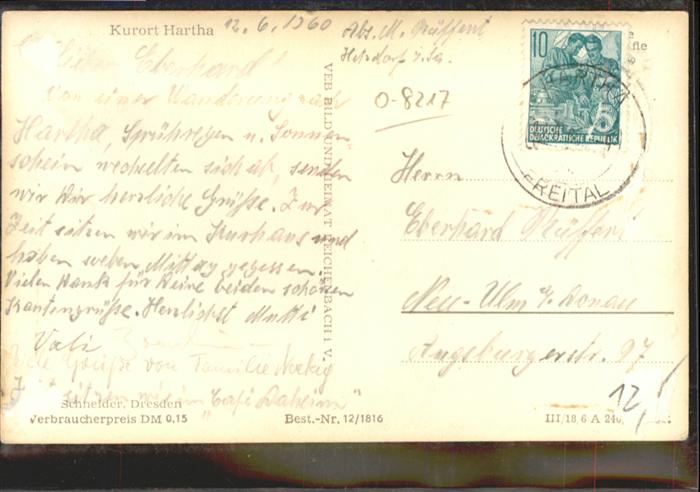 Kurort Hartha 12.6.1960
Abs. M. Rüffert
Hetzdorf i. Sa.
O-8217
Lieber Eberhard!
Von einer Wanderung nach
Hartha, Sprühregen u. Sonnen
schein wechselten sich ab, senden
wir Dir herzliche Grüße. Zur
Zeit sitzen wir im Kurhaus und
haben soeben Mittag gegessen.
Vielen Dank für Deine beiden schönen
Kartengrüße. Herzlichst Mutti
Vati
Viele Grüße von Familie
Jetzt sitzen wir im "Café Daheim"
Schneider, Dresden
Verbraucherpreis DM 0,15
Best.-Nr. 12/1816
III/18/6 A 240
VEB BILD UND HEIMAT REICHENBACH I. V.
10
DEUTSCHE
DEMOKRATISCHE REPUBLIK
HARTHA
FREITAL
Herrn
Eberhard Rüffert
Neu-Ulm a/Donau
Augsburgerstr. 97
12,-